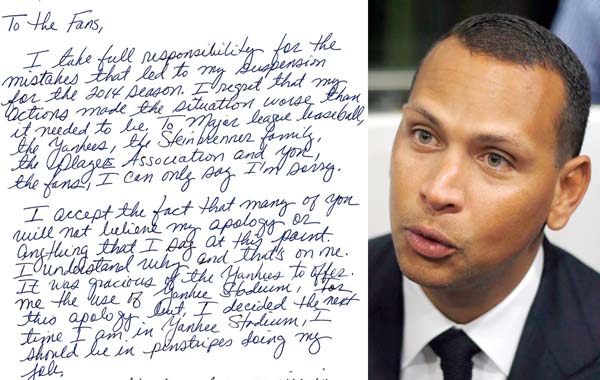 To the Fans,
I take full responsibility for the
mistakes that led to my suspension
for the 2014 season. I regret that my
actions made the situation worse than
it needed to be. To Major league baseball,
the Yankees, the Steinbrenner family,
the Players Association and you,
the fans, I can only say I'm sorry.
I accept the fact that many of you
will not believe my apology or
anything that I say at this point.
I understand why and that's on me.
It was gracious of the Yankees to offer
me the use of Yankee Stadium, for
this apology but, I decided the next
time I am in Yankee Stadium, I
should be in pinstripes doing my
job.